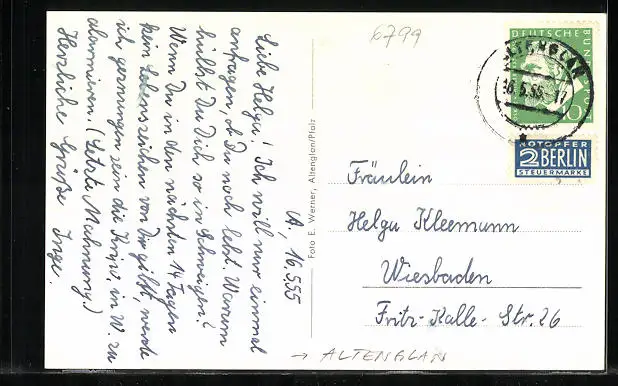 A. 16.5.55
Liebe Helga! Ich will nur einmal
anfragen, ob Du noch lebst. Warum
hüllst Du Dich so in Schweigen?
Wenn Du in den nächsten 14 Tagen
kein Lebenszeichen von Dir gibst, werde
ich gezwungen sein die Kripo, in W. zu
alarmieren. (Letzte Mahnung.)
Herzliche Grüße Inge.
Foto E. Werner, Altenglan/Pfalz
6799
DEUTSCHE BUNDESPOST
10
ALTENGLAN
16.5.55-17
NOTOPFER
2 BERLIN
STEUERMARKE
Fräulein
Helga Kleemann
Wiesbaden
Fritz-Kalle-Str. 26
→ ALTENGLAN